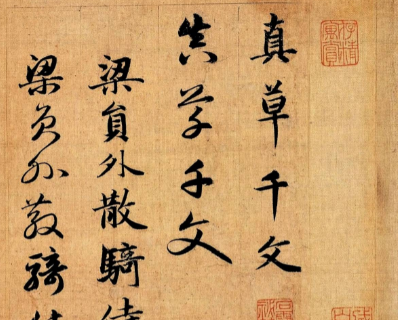 真草千文
真草千文
梁員外散騎侍
梁員外散騎侍